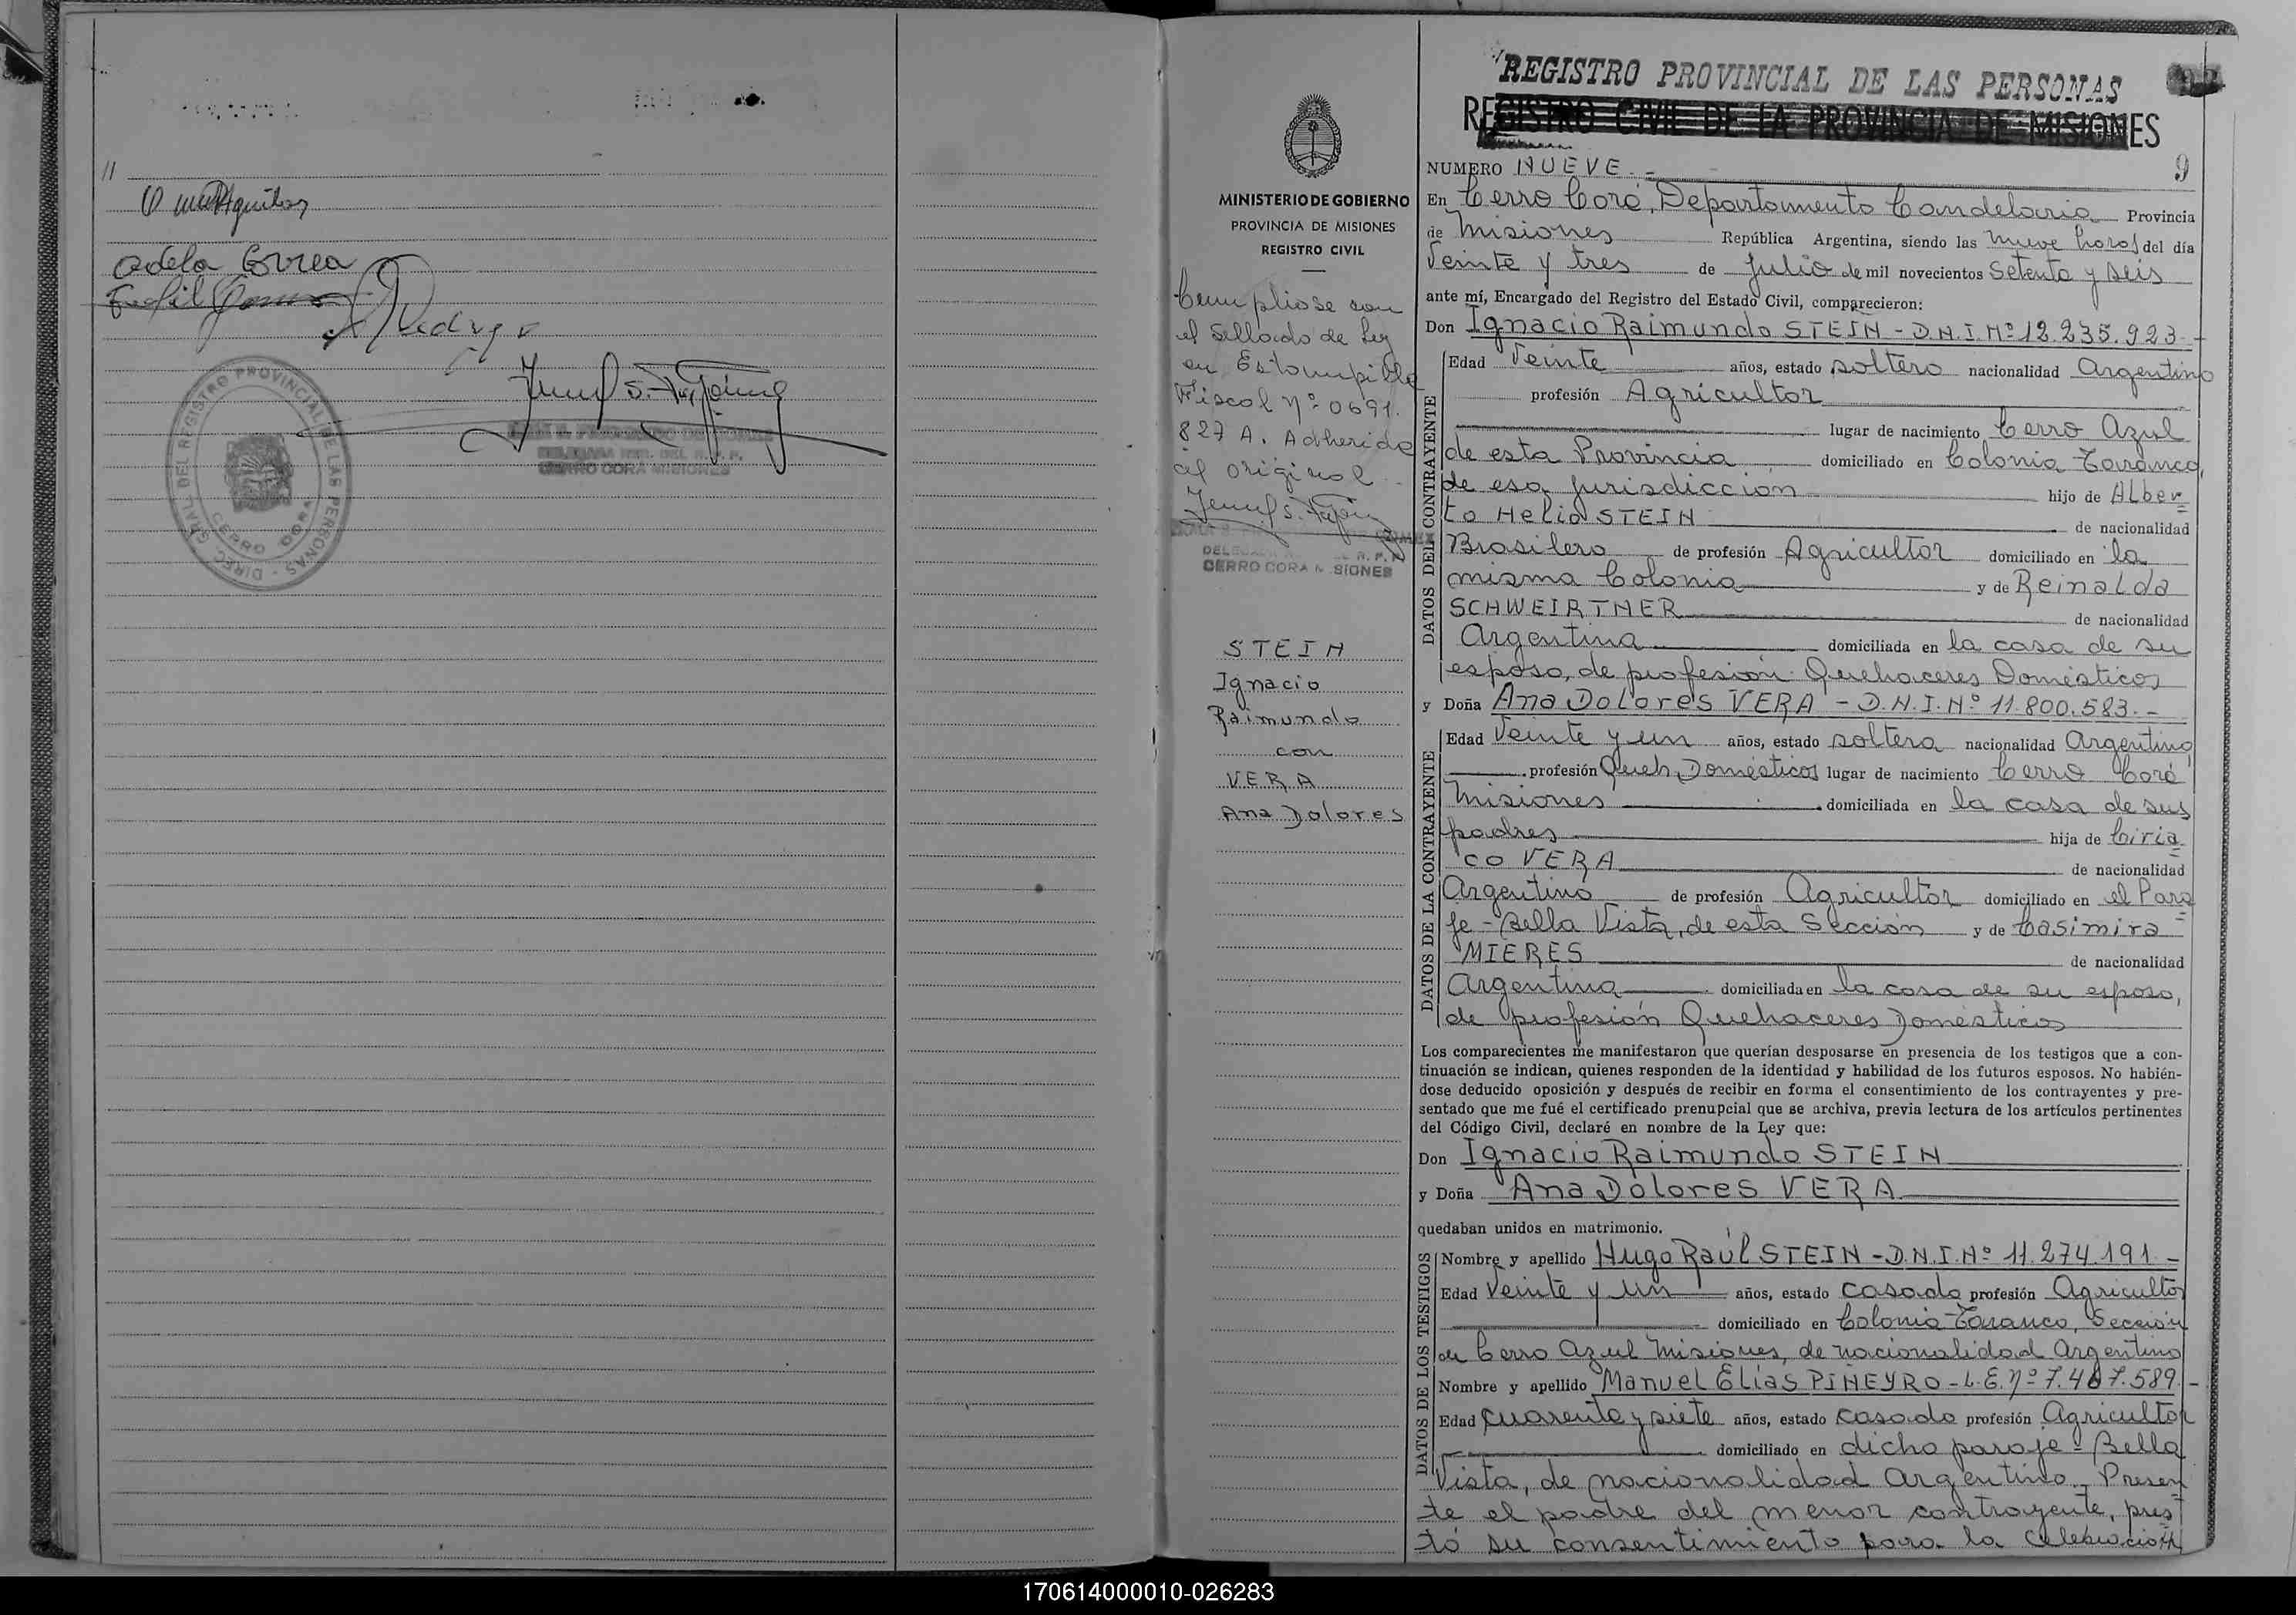 //
Adela Correa
DIREC. GRAL. DEL REGISTRO PROVINCIAL DE LAS PERSONAS -
CERRO CORA
CERRO CORA MISIONES
REGISTRO PROVINCIAL DE LAS PERSONAS
REGISTRO CIVIL DE LA PROVINCIA DE MISIONES
9
MINISTERIO DE GOBIERNO
PROVINCIA DE MISIONES
REGISTRO CIVIL
Cumpliose con
el Sellado de Ley
en Estampilla
Fiscal Nº 0691.
827 A. Adherida
al original
CERRO CORA MISIONES
STEIN
Ignacio
Raimundo
con
VERA
Ana Dolores
NUMERO NUEVE.-
En Cerro Corá, Departamento Candelaria Provincia
de Misiones República Argentina, siendo las Nueve horas del día
Veinte y tres de Julio de mil novecientos Setenta y seis
ante mí, Encargado del Registro del Estado Civil, comparecieron:
Don Ignacio Raimundo STEIN - D.N.I. Nº 12.235.923.-
DATOS DEL CONTRAYENTE
Edad Veinte años, estado soltero nacionalidad Argentino
profesión Agricultor
lugar de nacimiento Cerro Azul
de esta Provincia domiciliado en Colonia Taranco,
de esa jurisdicción hijo de Alber=
to Helio STEIN de nacionalidad
Brasilero de profesión Agricultor domiciliado en la
misma Colonia y de Reinalda
SCHWEIRTNER de nacionalidad
Argentina domiciliada en la casa de su
esposo, de profesión Quehaceres Domésticos
y Doña Ana Dolores VERA - D.N.I. Nº 11.800.583.-
DATOS DE LA CONTRAYENTE
Edad Veinte y un años, estado soltera nacionalidad Argentina
profesión Queh. Domésticos lugar de nacimiento Cerro Corá
Misiones domiciliada en la casa de sus
padres hija de Ciria=
co VERA de nacionalidad
Argentino de profesión Agricultor domiciliado en el Para=
je - Bella Vista, de esta Sección y de Casimira
MIERES de nacionalidad
Argentina domiciliada en la casa de su esposo,
de profesión Quehaceres Domésticos
Los comparecientes me manifestaron que querían desposarse en presencia de los testigos que a con-
tinuación se indican, quienes responden de la identidad y habilidad de los futuros esposos. No habién-
dose deducido oposición y después de recibir en forma el consentimiento de los contrayentes y pre-
sentado que me fué el certificado prenupcial que se archiva, previa lectura de los artículos pertinentes
del Código Civil, declaré en nombre de la Ley que:
Don Ignacio Raimundo STEIN
y Doña Ana Dolores VERA
quedaban unidos en matrimonio.
DATOS DE LOS TESTIGOS
Nombre y apellido Hugo Raúl STEIN - D.N.I. Nº 11.274.191.-
Edad Veinte y un años, estado casado profesión Agricultor
domiciliado en Colonia Taranco, Sección
de Cerro Azul Misiones, de nacionalidad Argentino
Nombre y apellido Manuel Elías PIÑEYRO - L.E. Nº 7.487.589.-
Edad cuarenta y siete años, estado casado profesión Agricultor
domiciliado en dicho paraje - Bella
Vista, de nacionalidad Argentino. Presen=
te el padre del menor contrayente, pres=
tó su consentimiento para la celebración
170614000010-026283